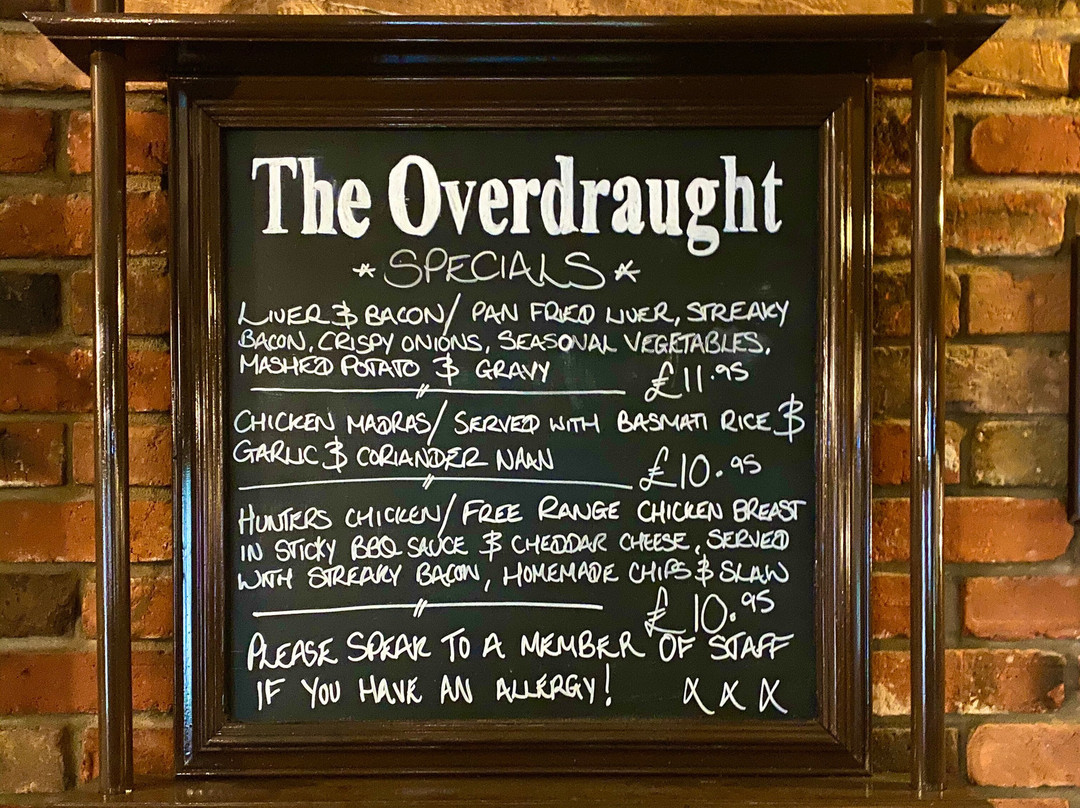 The Overdraught
* SPECIALS *
LIVER & BACON/ PAN FRIED LIVER, STREAKY
BACON, CRISPY ONIONS, SEASONAL VEGETABLES,
MASHED POTATO & GRAVY
£11.95
CHICKEN MADRAS/ SERVED WITH BASMATI RICE &
GARLIC & CORIANDER NAAN
£10.95
HUNTERS CHICKEN/ FREE RANGE CHICKEN BREAST
IN STICKY BBQ SAUCE & CHEDDAR CHEESE, SERVED
WITH STREAKY BACON, HOMEMADE CHIPS & SLAW
£10.95
PLEASE SPEAK TO A MEMBER OF STAFF
IF YOU HAVE AN ALLERGY! X X X